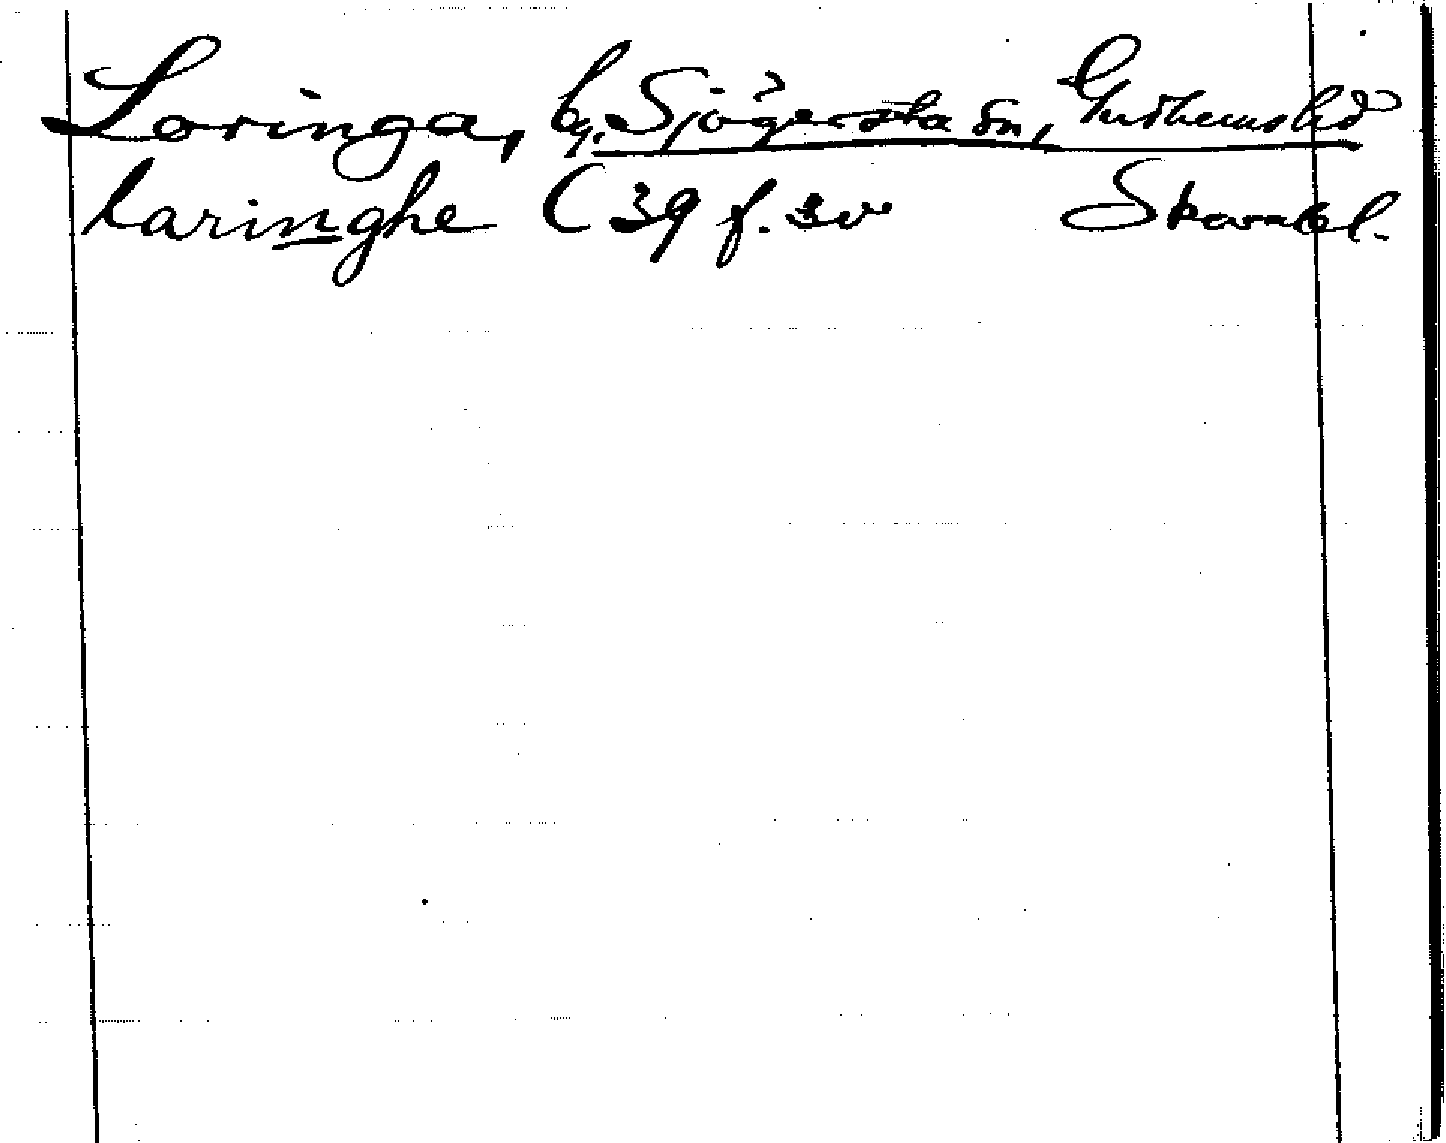 Loringa, by, Sjögersta sn, Gudhems hd
laringhe C 39 f. 3v Skarab l.